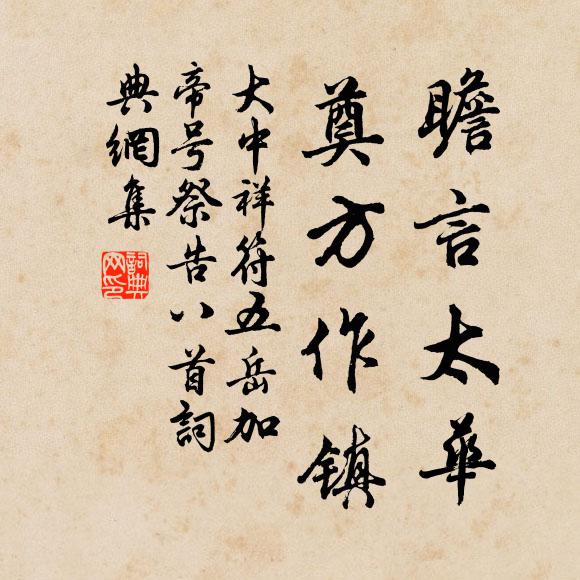 瞻言太華
奠方作鎮
大中祥符五岳加
帝号祭告八首詞
典網集
詞典網印